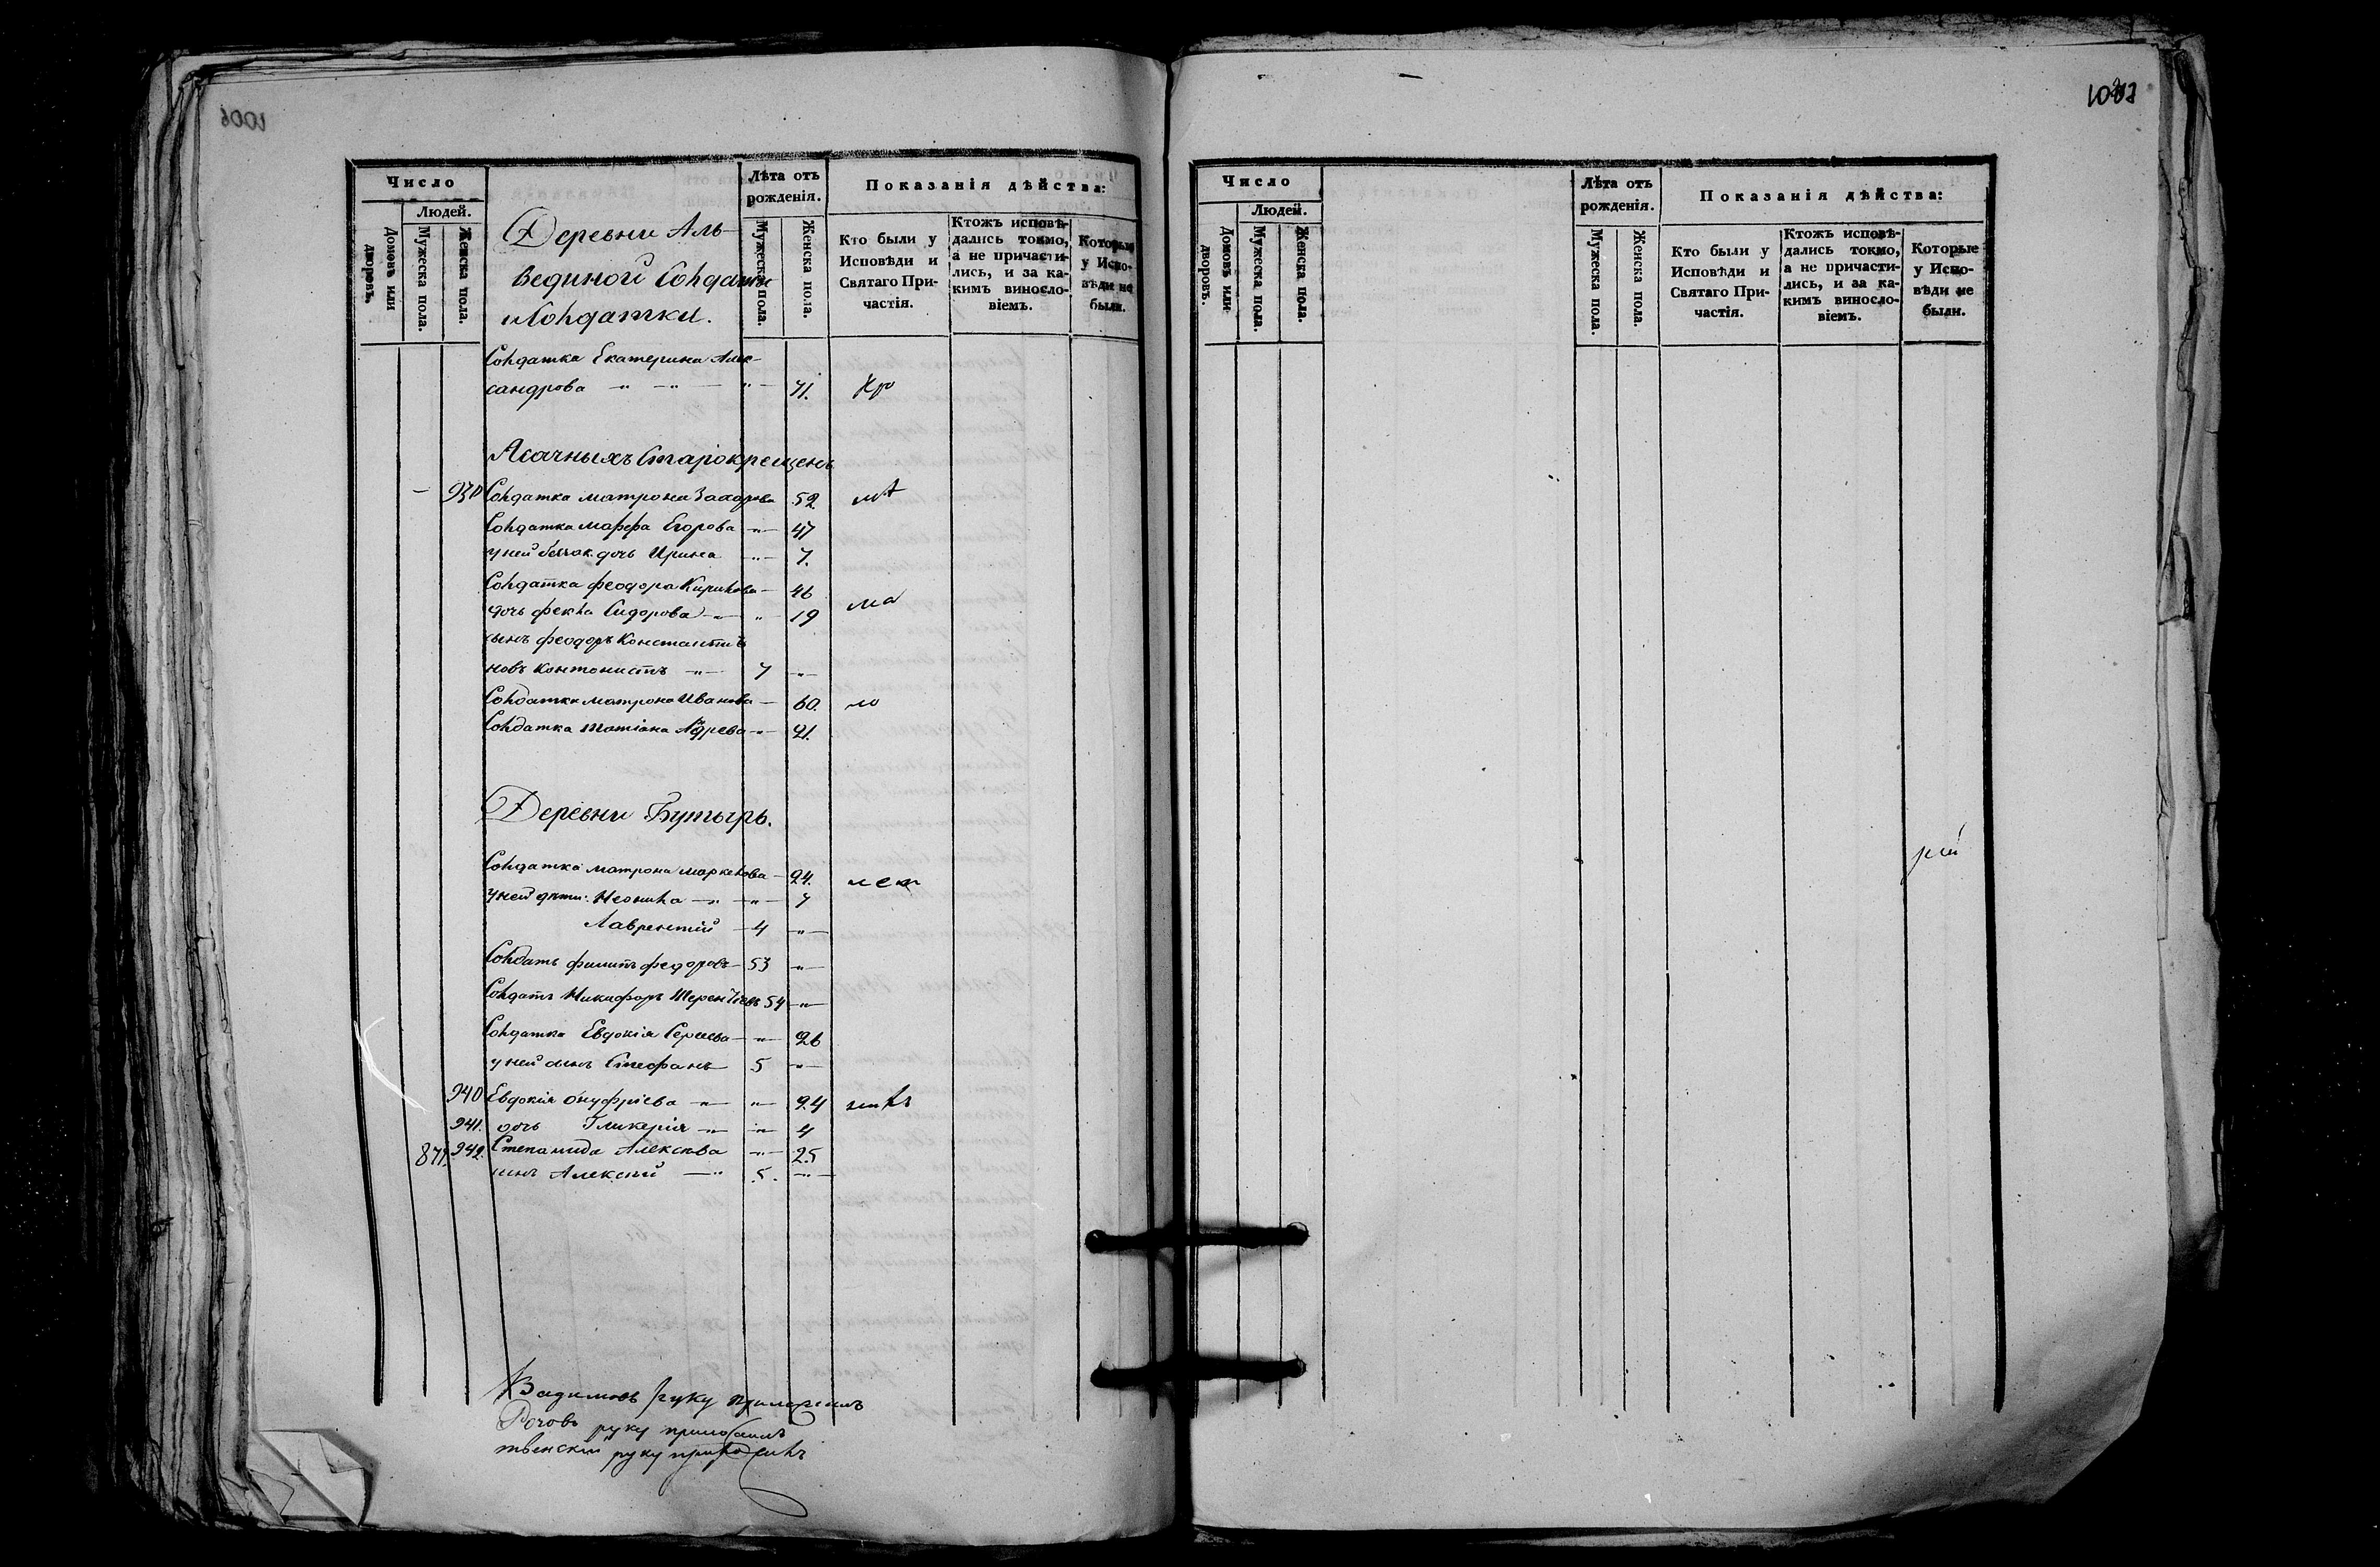 1006
Число
Людей.
Домовъ или дворовъ.
Мужеска пола.
Женска пола.
Лѣта отъ рожденія.
Мужеска пола.
Женска пола.
Показанія дѣйства:
Кто были у Исповѣди и Святаго Причастія.
Ктожъ исповѣ-
дались токмо,
а не причасти-
лись, и за ка-
кимъ виносло-
віемъ.
Которые у Испо-
вѣди не
были.
Деревни Аль-
вединой Солдаты
и Солдатки.
Солдатка Екатерина Алек-
сандрова 71.
Ясачныхъ Старокрещенъ
930 Солдатка Матрона Захарова 52
Солдатка Марфа Егорова 47
у ней дочь Ирина 7.
Солдатка Феодора Кирилова 46
дочь Фекла Сидорова 19
сынъ Феодоръ Константи
новъ Кантонистъ 7
Солдатка Матрона Иванова 60.
Солдатка Татіана 21.
Деревни Бутырь.
Солдатка Матрона Маркелова 24.
у ней дѣти: Неонила 7
Лаврентій 4
Солдатъ Филипъ Федоровъ 53
Солдатъ Никифоръ Терентіевъ 54
Солдатка Евдокія Сергѣева 26
у ней сынъ Стефанъ 5
940 Евдокія Онуфріева 24
941. дочь Гликерія 4
942. Степанида Алексѣева 25
сынъ Алексѣй 5.
руку приложилъ
руку приложилъ
руку приложилъ
Число
Людей.
Домовъ или дворовъ.
Мужеска пола.
Женска пола.
Лѣта отъ рожденія.
Мужеска пола.
Женска пола.
Показанія дѣйства:
Кто были у Исповѣди и Святаго Причастія.
Ктожъ исповѣ-
дались токмо,
а не причасти-
лись, и за ка-
кимъ виносло-
віемъ.
Которые
у Испо-
вѣди не
были.